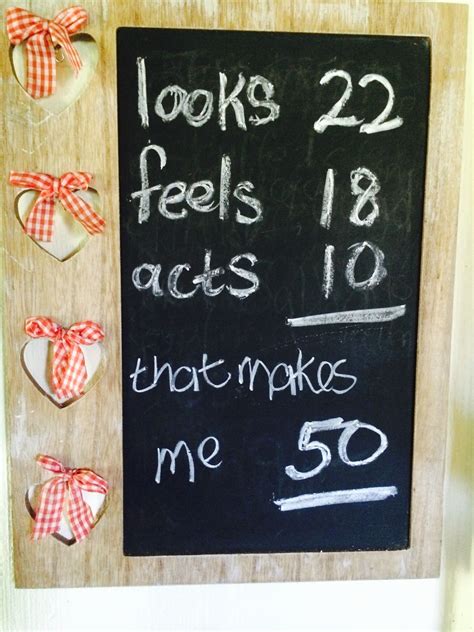 looks 22
feels 18
acts 10
that makes
me 50